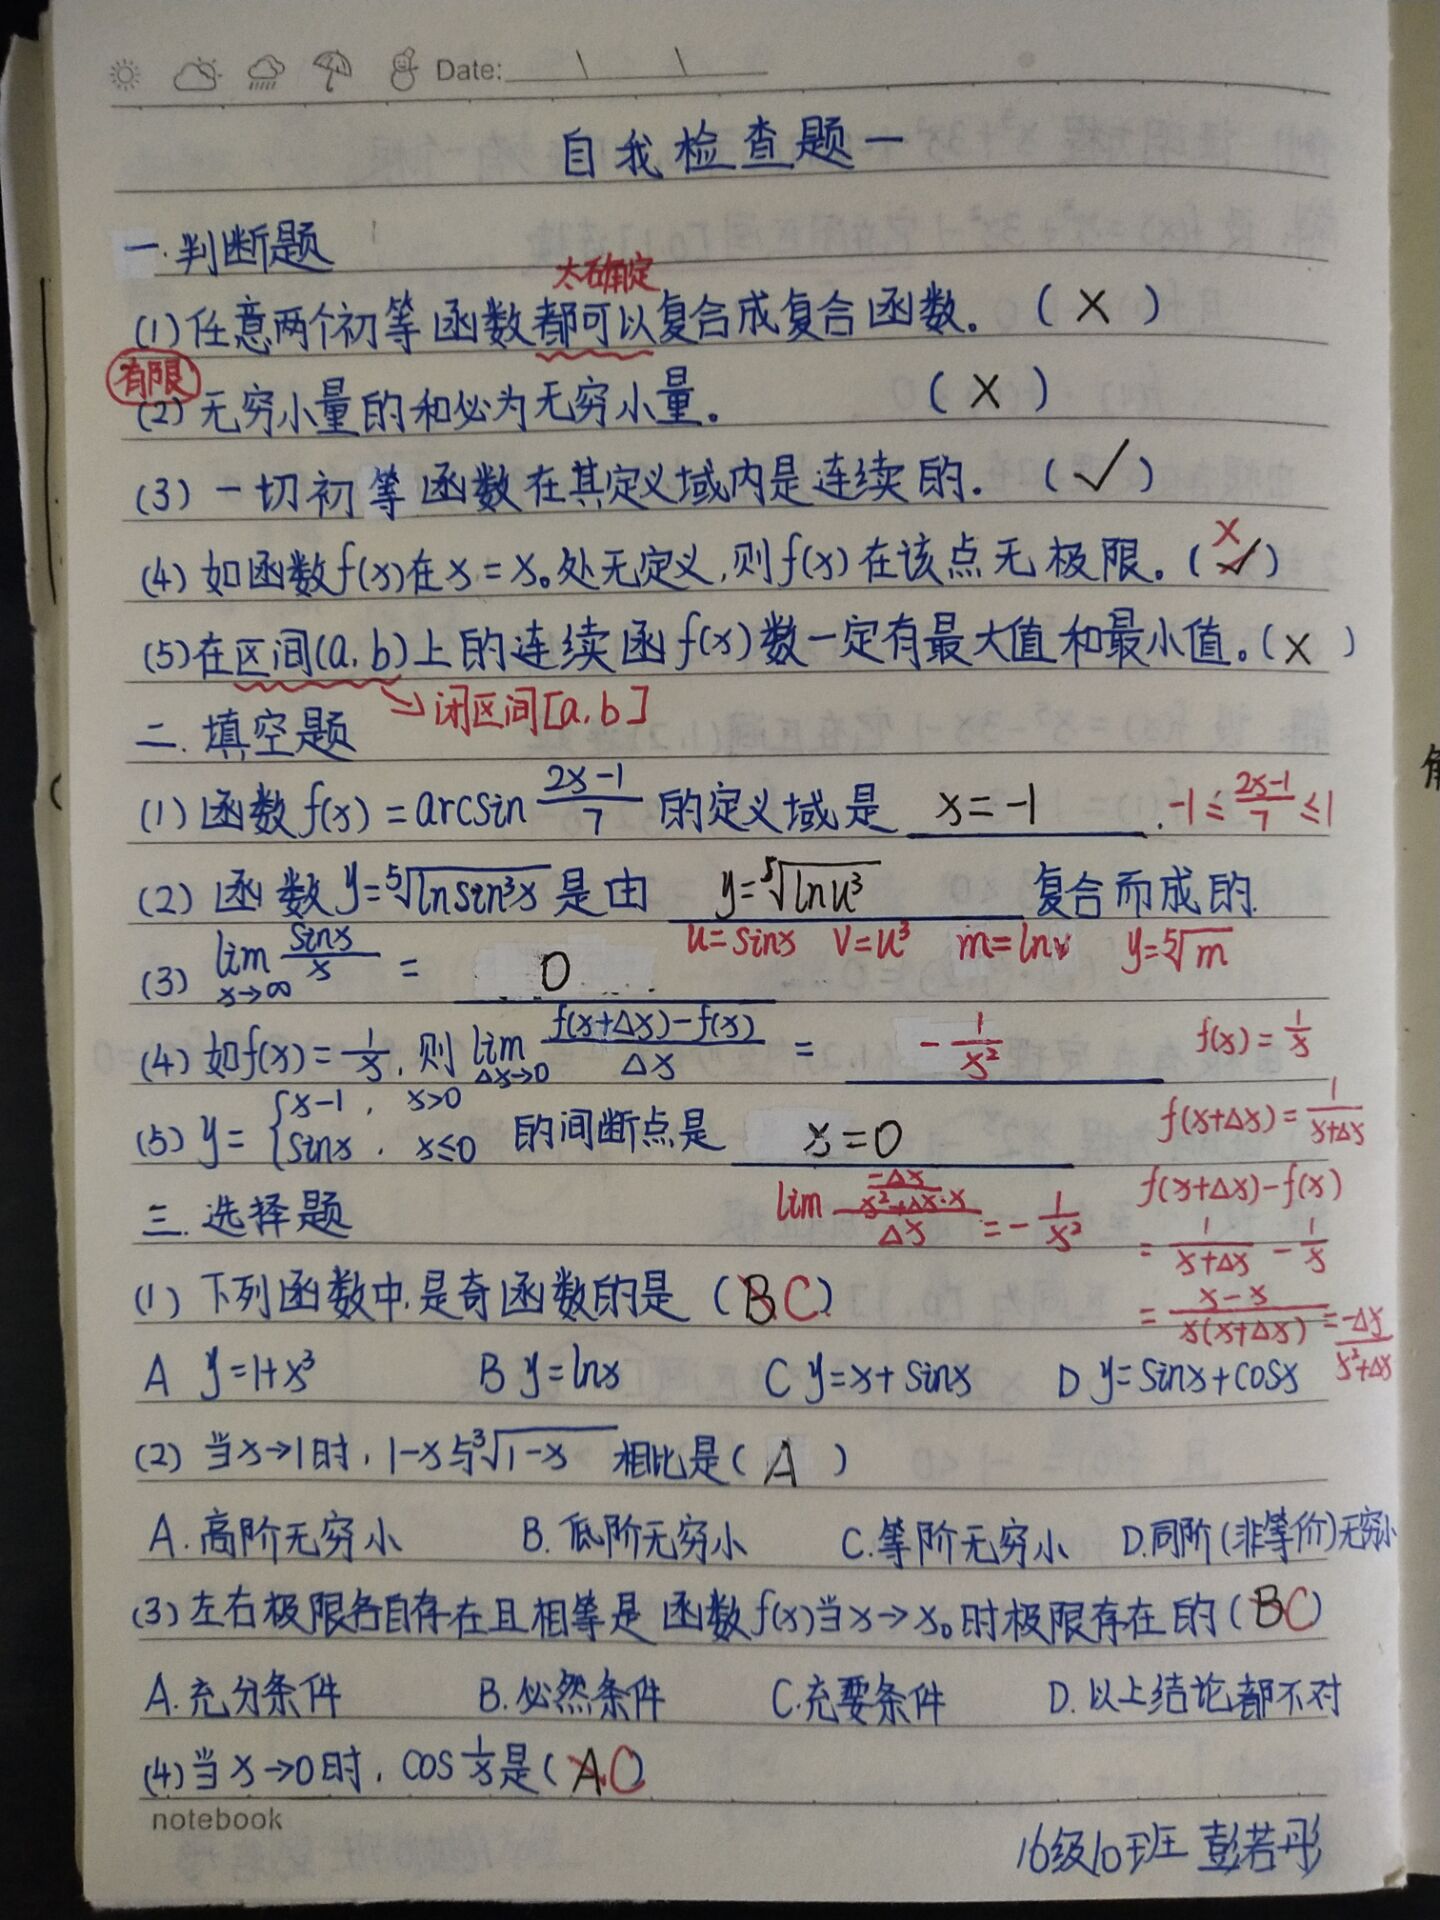 Date:
自我检查题一
一.判断题
太确定
(1)任意两个初等函数都可以复合成复合函数。(×)
有限
(2)无穷小量的和必为无穷小量。(×)
(3)一切初等函数在其定义域内是连续的.(√)
(4)如函数f(x)在x=x₀处无定义,则f(x)在该点无极限。(√) ×
(5)在区间(a,b)上的连续函f(x)数一定有最大值和最小值。(×)
→闭区间[a,b]
二.填空题
(1)函数f(x)=arcsin (2x-1)/7 的定义域是 x=-1 . -1≤(2x-1)/7≤1
(2)函数y=⁵√(lnsin³x)是由 y=⁵√(lnu³) 复合而成的.
u=sinx v=u³ m=lnv y=⁵√m
(3) lim x→∞ sinx/x = 0
(4)如f(x)=1/x,则 lim Δx→0 (f(x+Δx)-f(x))/Δx = -1/x² f(x)=1/x
f(x+Δx)=1/(x+Δx)
(5) y={x-1, x>0 sinx, x≤0 的间断点是 x=0
lim (-Δx/(x²+Δx·x))/Δx = -1/x² f(x+Δx)-f(x)
三.选择题
=1/(x+Δx) - 1/x
(1)下列函数中,是奇函数的是(B C)
=(x-x)/(x(x+Δx))=-Δx/(x²+Δx
A y=1+x³ B y=lnx C y=x+sinx D y=sinx+cosx
(2)当x→1时,1-x与³√(1-x)相比是(A)
A.高阶无穷小 B.低阶无穷小 C.等阶无穷小 D.同阶(非等价)无穷小
(3)左右极限各自存在且相等是函数f(x)当x→x₀时极限存在的(B C)
A.充分条件 B.必然条件 C.充要条件 D.以上结论都不对
(4)当x→0时,cos 1/x是(A C)
notebook
16级10班 彭若彤